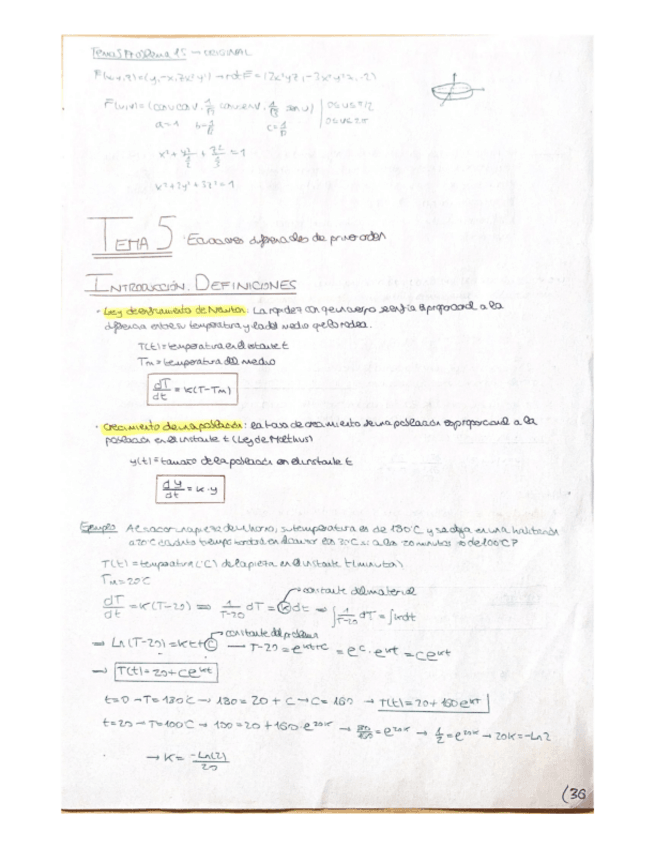 Tema 5 Problema 15 → ORIGINAL
F(x,y,z)=(y,-x,2x³y²) → rot F=
F(u,v)=(cosu cosv, 1/√2 cosu senv, 1/√3 senu) | 0≤u≤π/2
a=1 b=1/√2 c=1/√3 | 0≤v≤2π
x²+y²/(1/2)+z²/(1/3)=1
x²+2y²+3z²=1
TEMA 5: Ecuaciones diferenciales de primer orden
INTRODUCCIÓN. DEFINICIONES
· Ley de enfriamiento de Newton: La rapidez con que un cuerpo se enfría es proporcional a la
diferencia entre su temperatura y la del medio que lo rodea.
T(t)=temperatura en el instante t
Tm=temperatura del medio
dT/dt = K(T-Tm)
· Crecimiento de una población: la tasa de crecimiento de una población es proporcional a la
población en el instante t (Ley de Malthus)
y(t)=tamaño de la población en el instante t
dy/dt = K·y
Ejemplo Al sacar una pieza de un horno, su temperatura es de 180°C y se deja en una habitación
a 20°C cuánto tiempo tardará en alcanzar los 30°C si a los 20 minutos es de 100°C?
T(t)=temperatura (°C) de la pieza en el instante t (minutos)
Tm=20°C
→ constante del material
dT/dt = K(T-20) ⇒ 1/(T-20) dT = K dt ⇒ ∫ 1/(T-20) dT = ∫Kdt
→ constante del problema
⇒ Ln(T-20)=Kt+C → T-20=e^(Kt+C) = e^C·e^(Kt) = Ce^(Kt)
→ T(t)=20+Ce^(Kt)
t=0 → T=180°C → 180=20+C → C=160 → T(t)=20+160e^(Kt)
t=20 → T=100°C → 100=20+160·e^(20K) → 80/160=e^(20K) → 1/2=e^(20K) → 20K=-Ln2
→ K= -Ln(2)/20
(36